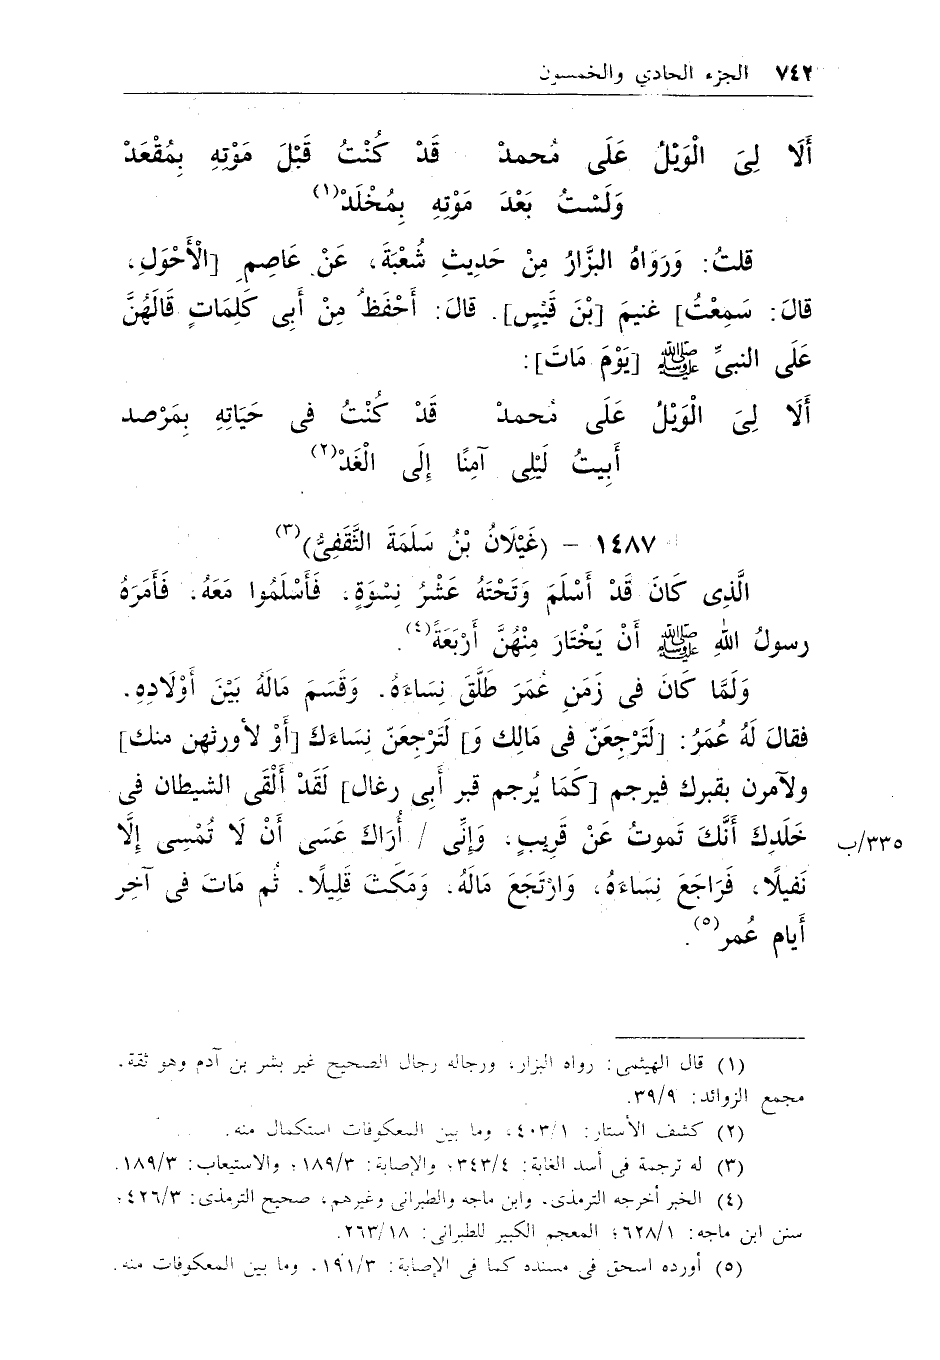 ٧٤٢ الجزء الحادي والخمسون
أَلَا لِىَ الْوَيْلُ عَلَى مُحمدْ قَدْ كُنْتُ قَبْلَ مَوْتِهِ بِمُقْعَدْ
وَلَسْتُ بَعْدَ مَوْتِهِ بِمُخْلَدْ(١)
قلتُ: وَرَوَاهُ البَّزارُ مِنْ حَديثِ شُعْبَةَ، عَنْ عَاصِمِ [الْأَحْوَلِ،
قالَ: سَمِعْتُ] غنيمَ [بْنَ قَيْسٍ]. قالَ: أَحْفَظُ مِنْ أَبى كَلِمَاتٍ قَالَهُنَّ
عَلَى النبىِّ ﷺ [يَوْمَ مَاتَ]:
أَلَا لِىَ الْوَيْلُ عَلَى مُحمدْ قَدْ كُنْتُ فى حَيَاتِهِ بمَرْصد
أَبِيتُ لَيْلِى آمِنًا إِلَى الْغَدْ(٢)
١٤٨٧ – (غَيْلَانُ بْنُ سَلَمَةَ الثَّقَفِىُّ)(٣)
الَّذِى كَانَ قَدْ أَسْلَمَ وَتَحْتَهُ عَشْرُ نِسْوَةٍ، فَأَسْلَمُوا مَعَهُ، فَأَمَرَهُ
رسولُ اللهِ ﷺ أَنْ يَخْتَارَ مِنْهُنَّ أَرْبَعَةً(٤).
وَلَمَّا كانَ فى زَمَنِ عُمَرَ طَلَّقَ نِسَاءَهُ. وَقَسَمَ مَالَهُ بَيْنَ أَوْلَادِهِ.
فقالَ لَهُ عُمَرُ: [لَتَرْجِعَنّ فى مَالِك وَ] لَتَرْجِعَنّ نِسَاءَكَ [أَوْ لأورثهن منك]
ولآمرن بقبرك فيرجم [كَمَا يُرجم قبر أَبى رغال] لَقَدْ أَلْقَى الشيطان فى
خَلَدِكَ أَنَّكَ تَموتُ عَنْ قَرِيبٍ، وَإِنِّى / أُرَاكَ عَسَى أَنْ لَا تُمْسِى إِلَّا
٣٣٥/ب
نَفيلًا، فَرَاجَعَ نِسَاءَهُ، وَارْتَجَعَ مَالَهُ. وَمَكَثَ قَلِيلًا. ثُم مَاتَ فى آخِر
أَيام عُمر(٥).
(١) قال الهيثمى: رواه البزار، ورجاله رجال الصحيح غير بشر بن آدم وهو ثقة.
مجمع الزوائد: ٣٩/٩.
(٢) كشف الأستار: ٤٠٣/١، وما بين المعكوفات استكمال منه.
(٣) له ترجمة فى أسد الغابة: ٣٤٣/٤؛ والإصابة: ١٨٩/٣؛ والاستيعاب: ١٨٩/٣.
(٤) الخبر أخرجه الترمذى. وابن ماجه والطبرانى وغيرهم، صحيح الترمذى: ٤٢٦/٣؛
سنن ابن ماجه: ٦٢٨/١؛ المعجم الكبير للطبرانى: ٢٦٣/١٨.
(٥) أورده اسحق فى مسنده كما فى الإصابة: ١٩١/٣. وما بين المعكوفات منه.